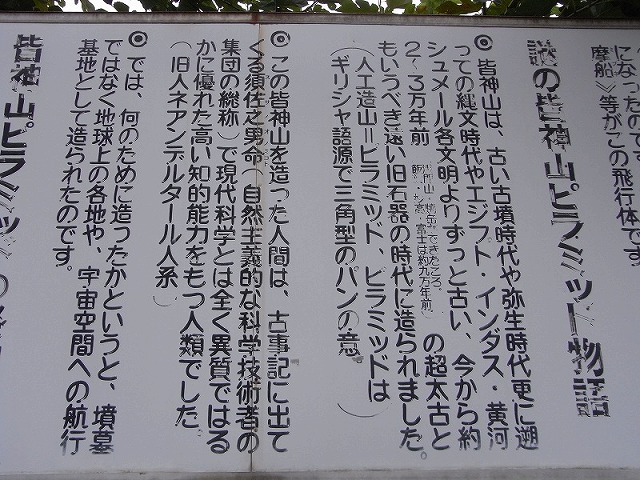 になったので
摩船》等がこの飛行体です
謎の皆神山ピラミット物語
◎ 皆神山は、古い古墳時代や弥生時代更に遡
っての縄文時代やエジプト・インダス・黄河
シュメール各文明よりずっと古い、今から約
２〜３万年前
できたころ。
富士は約九万年前
の超太古と
もいうべき遠い旧石器の時代に造られました。
（人工造山＝ピラミッド ピラミッドは
ギリシャ語源で三角型のパンの意）
◎ この皆神山を造った人間は、古事記に出て
くる須佐之男命（自然主義的な科学技術者の
集団の総称）で現代科学とは全く異質ではる
かに優れた高い知的能力をもつ人類でした。
（旧人ネアンデルタール人系）
◎ では、何のために造ったかというと、墳墓
ではなく地球上の各地や、宇宙空間への航行
基地として造られたのです。
皆神山ピラミッドの